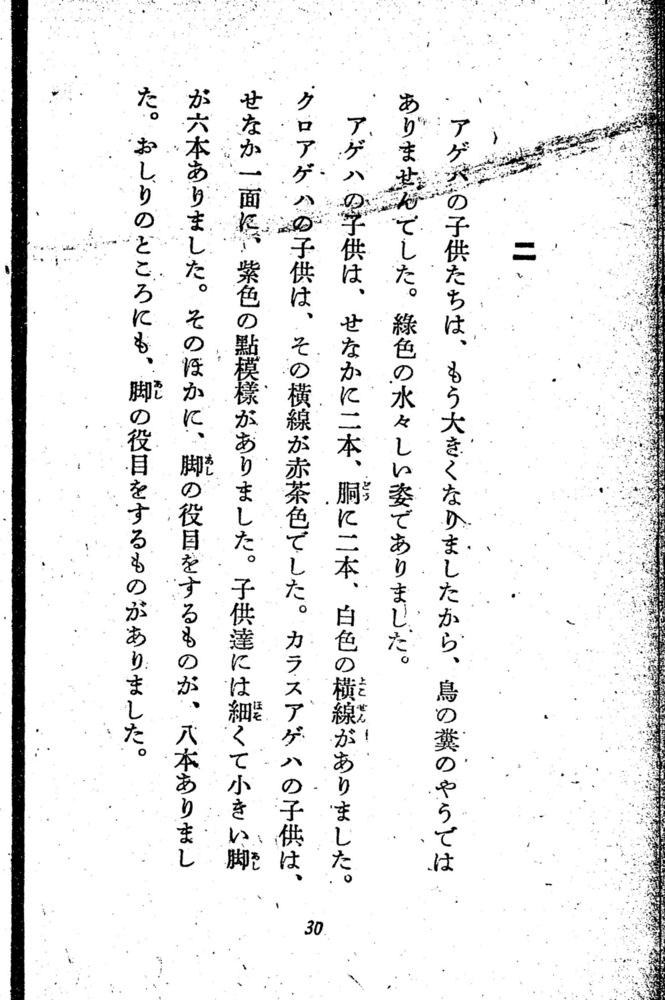 二
アゲハの子供たちは、もう大きくなりましたから、鳥の糞のやうでは
ありませんでした。綠色の水々しい姿でありました。
アゲハの子供は、せなかに二本、胴に二本、白色の橫線がありました。
クロアゲハの子供は、その橫線が赤茶色でした。カラスアゲハの子供は、
せなか一面に、紫色の點模樣がありました。子供達には細くて小きい脚
が六本ありました。そのほかに、脚の役目をするものが、八本ありまし
た。おしりのところにも、脚の役目をするものがありました。
30